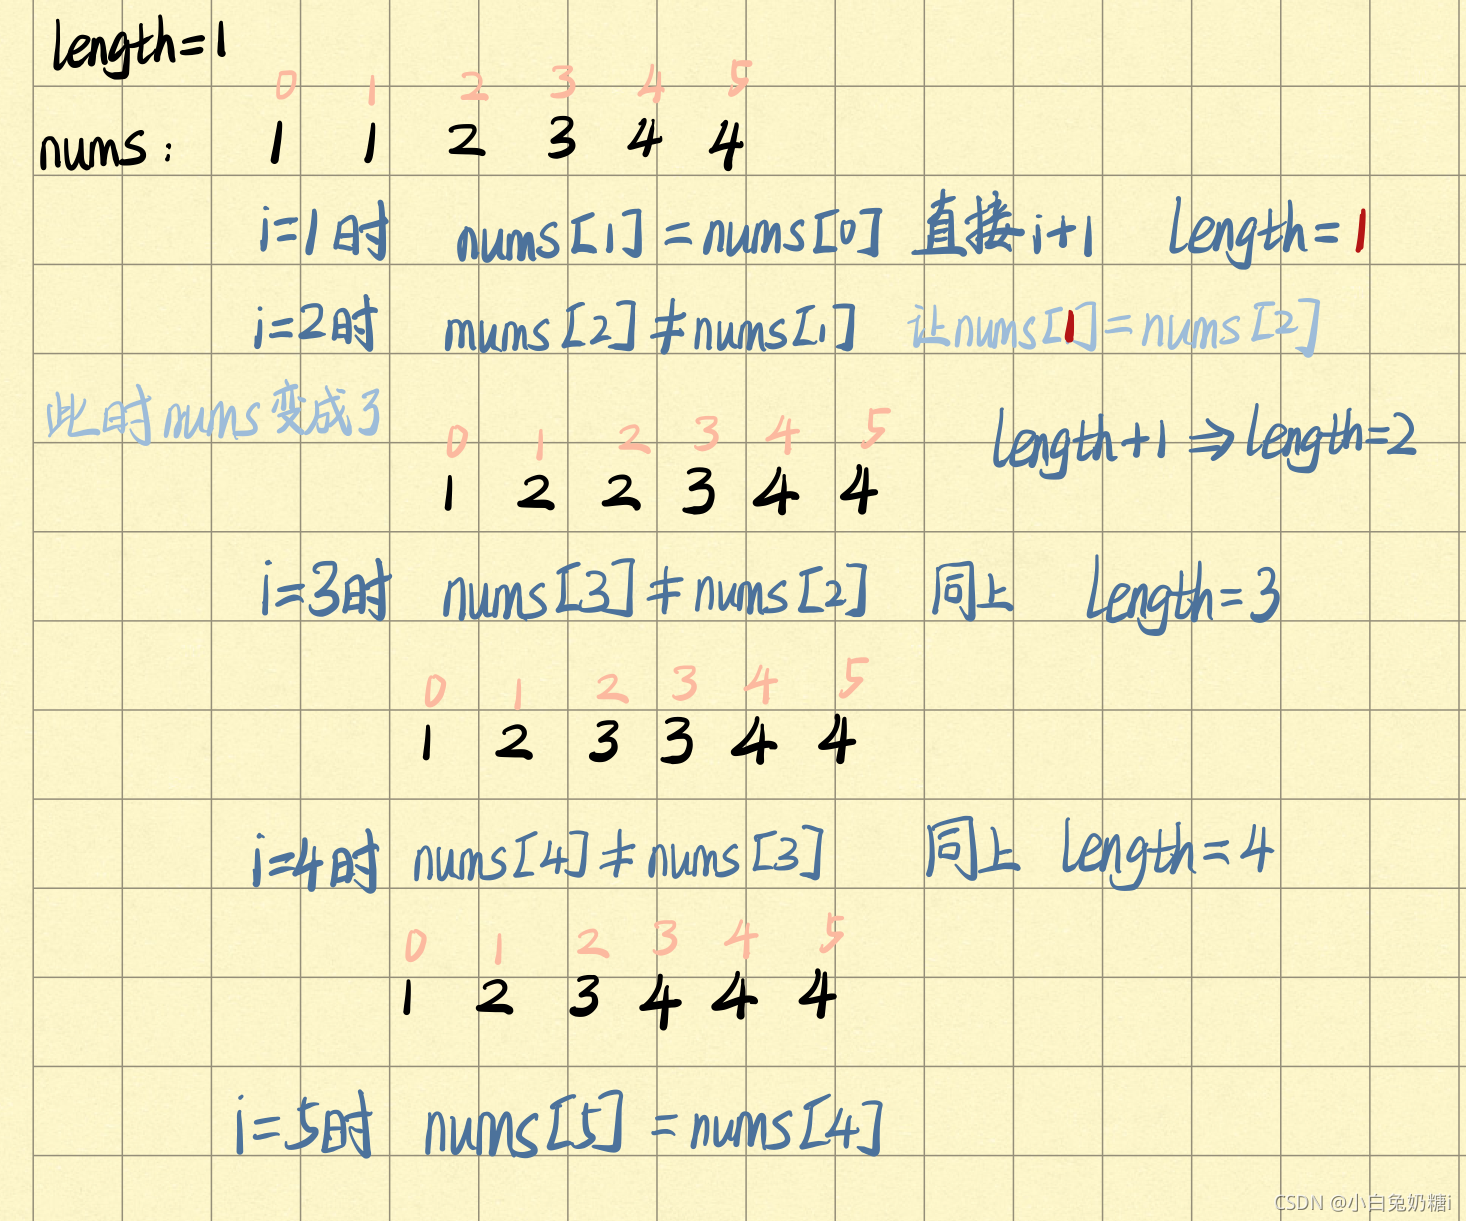 length=1
0 1 2 3 4 5
nums: 1 1 2 3 4 4
i=1时 nums[1]=nums[0] 直接i+1 length=1
i=2时 nums[2]≠nums[1] 让nums[1]=nums[2]
此时nums变成3 length+1⇒length=2
0 1 2 3 4 5
1 2 2 3 4 4
i=3时 nums[3]≠nums[2] 同上 length=3
0 1 2 3 4 5
1 2 3 3 4 4
i=4时 nums[4]≠nums[3] 同上 length=4
0 1 2 3 4 5
1 2 3 4 4 4
i=5时 nums[5]=nums[4]
CSDN @小白兔奶糖i